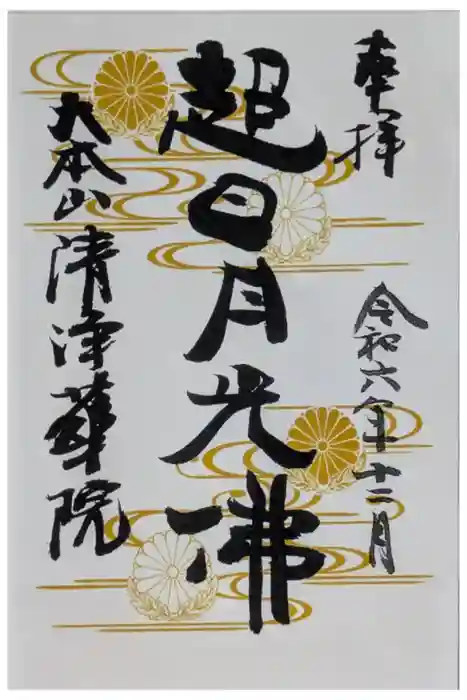 奉拝
令和六年十二月
超日月光佛
大本山清浄華院